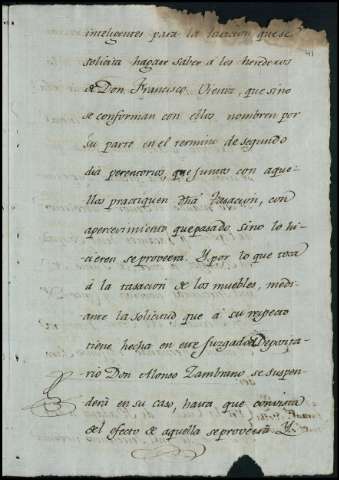 41
inteligentes para la tasacion que se
solicita hagase saber a los herederos
de Don Francisco que sino
se conforman con ellos nombren por
su parte en el termino de segundo
dia perentorio, que juntos con aque-
llos practiquen dha tasacion, con
apercevimiento que pasado, sino lo hi-
cieren se proveera. Y por lo que toca
à la tasacion de los muebles, medi-
ante la solicitud que à su respecto
tiene hecha en este juzgado el Deposita-
rio Don Alonso Zambrano, se suspen-
derá en su caso, hasta que con vista
del efecto de aquella se proveera. Y